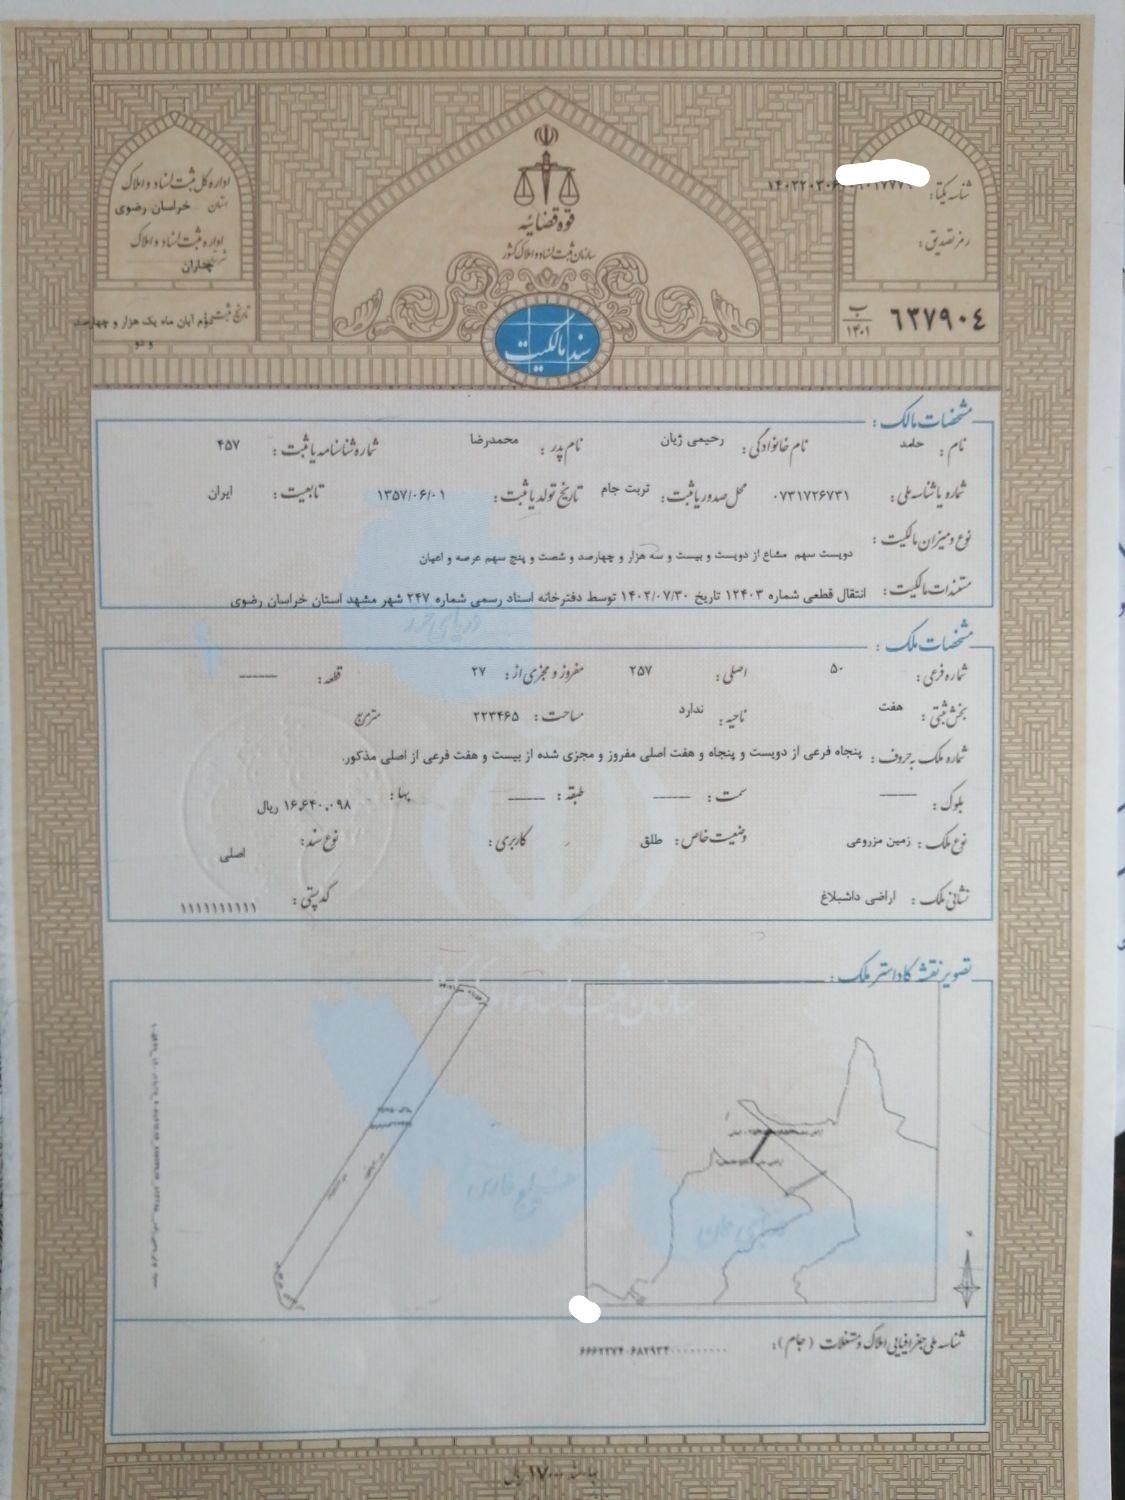 قوه قضائیه
سازمان ثبت اسناد و املاک کشور
سند مالکیت
شناسه یکتا:
رمز تصدیق:
ب
۱۴۰۱
۶۳۷۹۰۴
اداره کل ثبت اسناد و املاک
استان خراسان رضوی
اداره ثبت اسناد و املاک
تاریخ ثبت: آبان ماه یک هزار و چهارصد
و دو
مشخصات مالک:
نام: حامد نام خانوادگی: رحیمی ژیان نام پدر: محمدرضا شماره شناسنامه یا ثبت: ۴۵۷
شماره یا شناسه ملی: ۰۷۳۱۷۲۶۷۳۱ محل صدور یا ثبت: تربت جام تاریخ تولد یا ثبت: ۱۳۵۷/۰۶/۰۱ تابعیت: ایران
نوع و میزان مالکیت:
دویست سهم مشاع از دویست و بیست و سه هزار و چهارصد و شصت و پنج سهم عرصه و اعیان
مستندات مالکیت: انتقال قطعی شماره ۱۲۴۰۳ تاریخ ۱۴۰۲/۰۷/۳۰ توسط دفترخانه اسناد رسمی شماره ۲۴۷ شهر مشهد استان خراسان رضوی
دریای خزر
مشخصات ملک:
شماره فرعی: ۵۰ اصلی: ۲۵۷ مفروز و مجزی از: ۲۷ قطعه: -----
بخش ثبتی: هفت ناحیه: ندارد مساحت: ۲۲۳۴۶۵ مترمربع
شماره ملک به حروف: پنجاه فرعی از دویست و پنجاه و هفت اصلی مفروز و مجزی شده از بیست و هفت فرعی از اصلی مذکور.
بلوک: ----- سمت: ----- طبقه: ----- بها: ۱۶,۶۴۰,۰۹۸ ریال
نوع ملک: زمین مزروعی وضعیت خاص: طلق کاربری: نوع سند: اصلی
نشانی ملک: اراضی داشبلاغ کدپستی: ۱۱۱۱۱۱۱۱۱۱
سازمان ثبت اسناد و املاک کشور
تصویر نقشه کاداستر ملک:
خلیج فارس
دریای عمان
شناسه ملی جغرافیایی املاک و مستغلات (جام):